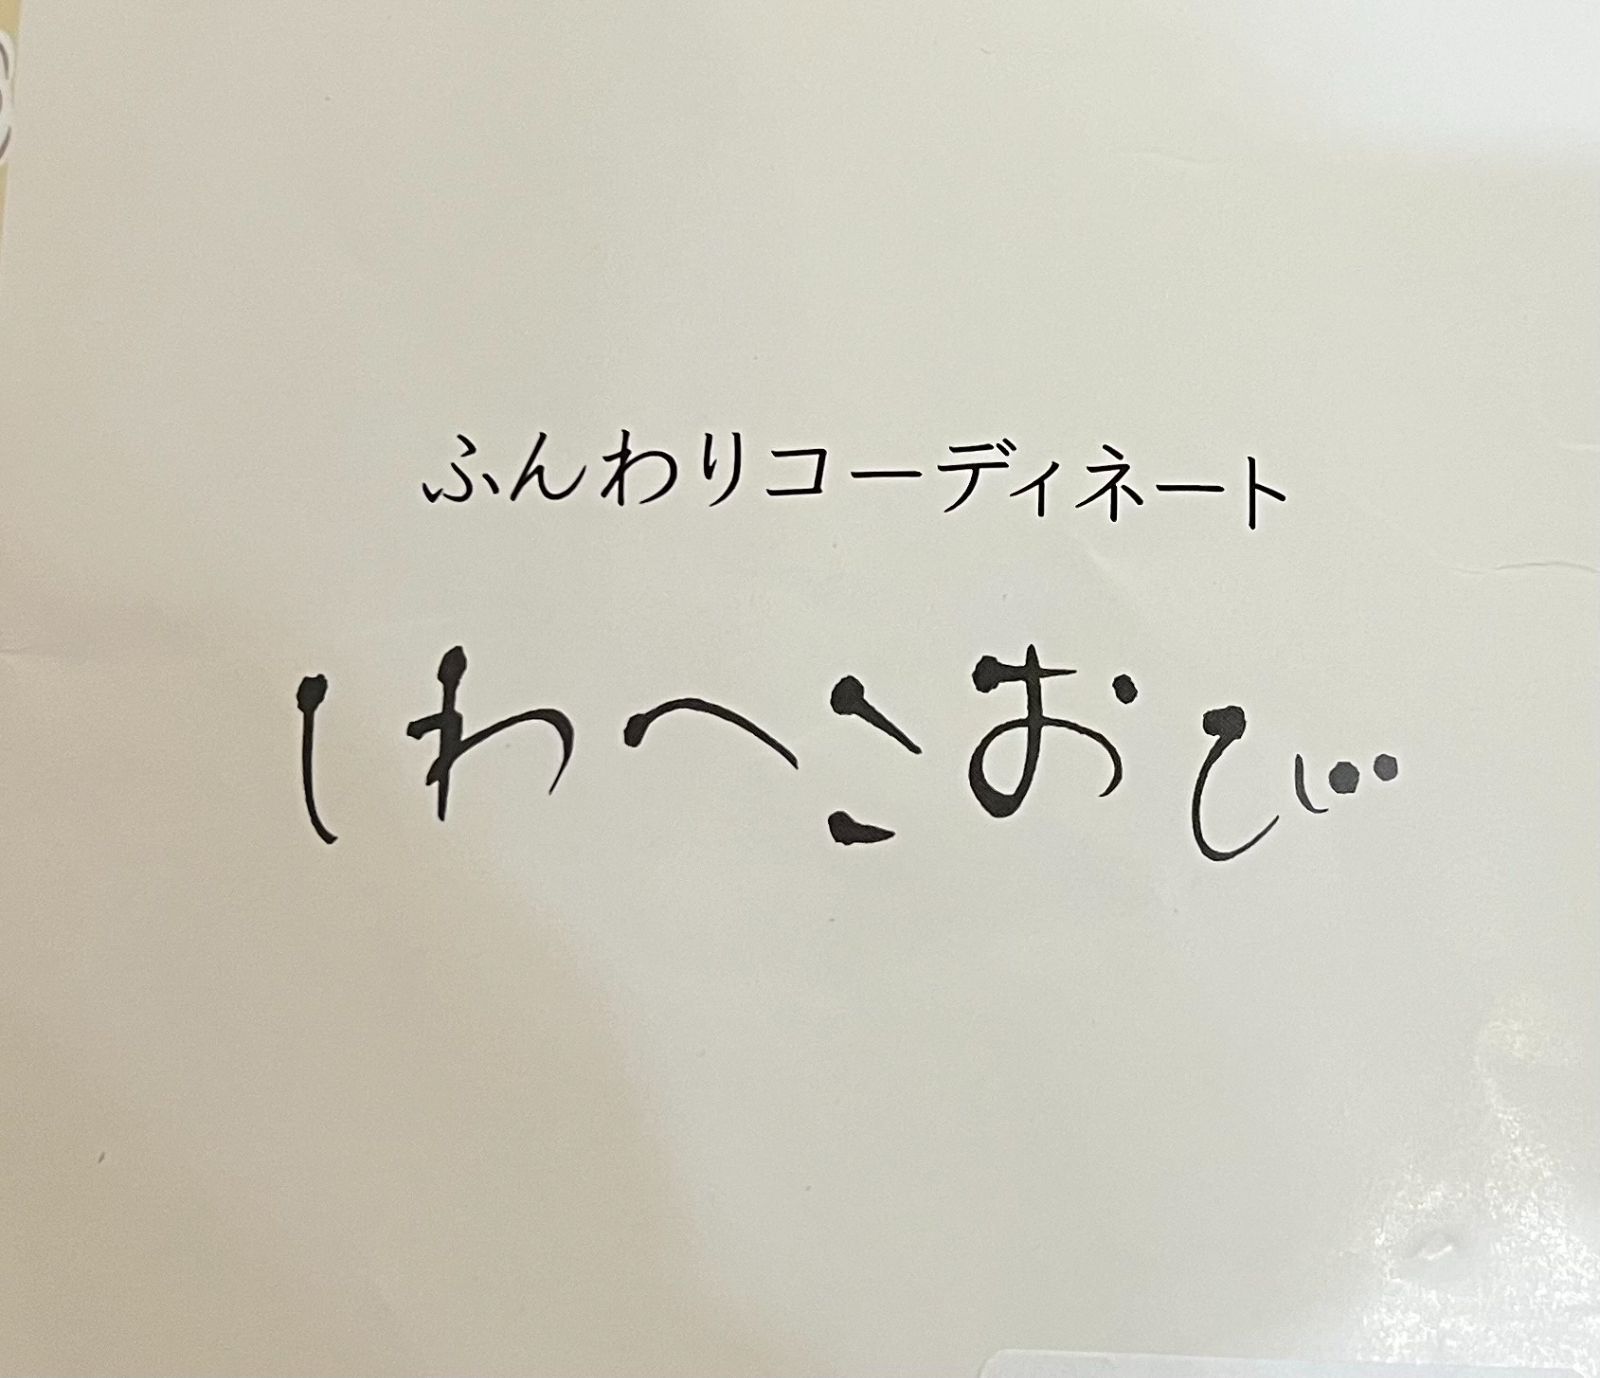 ふんわりコーディネート
しわへこおてぃ…